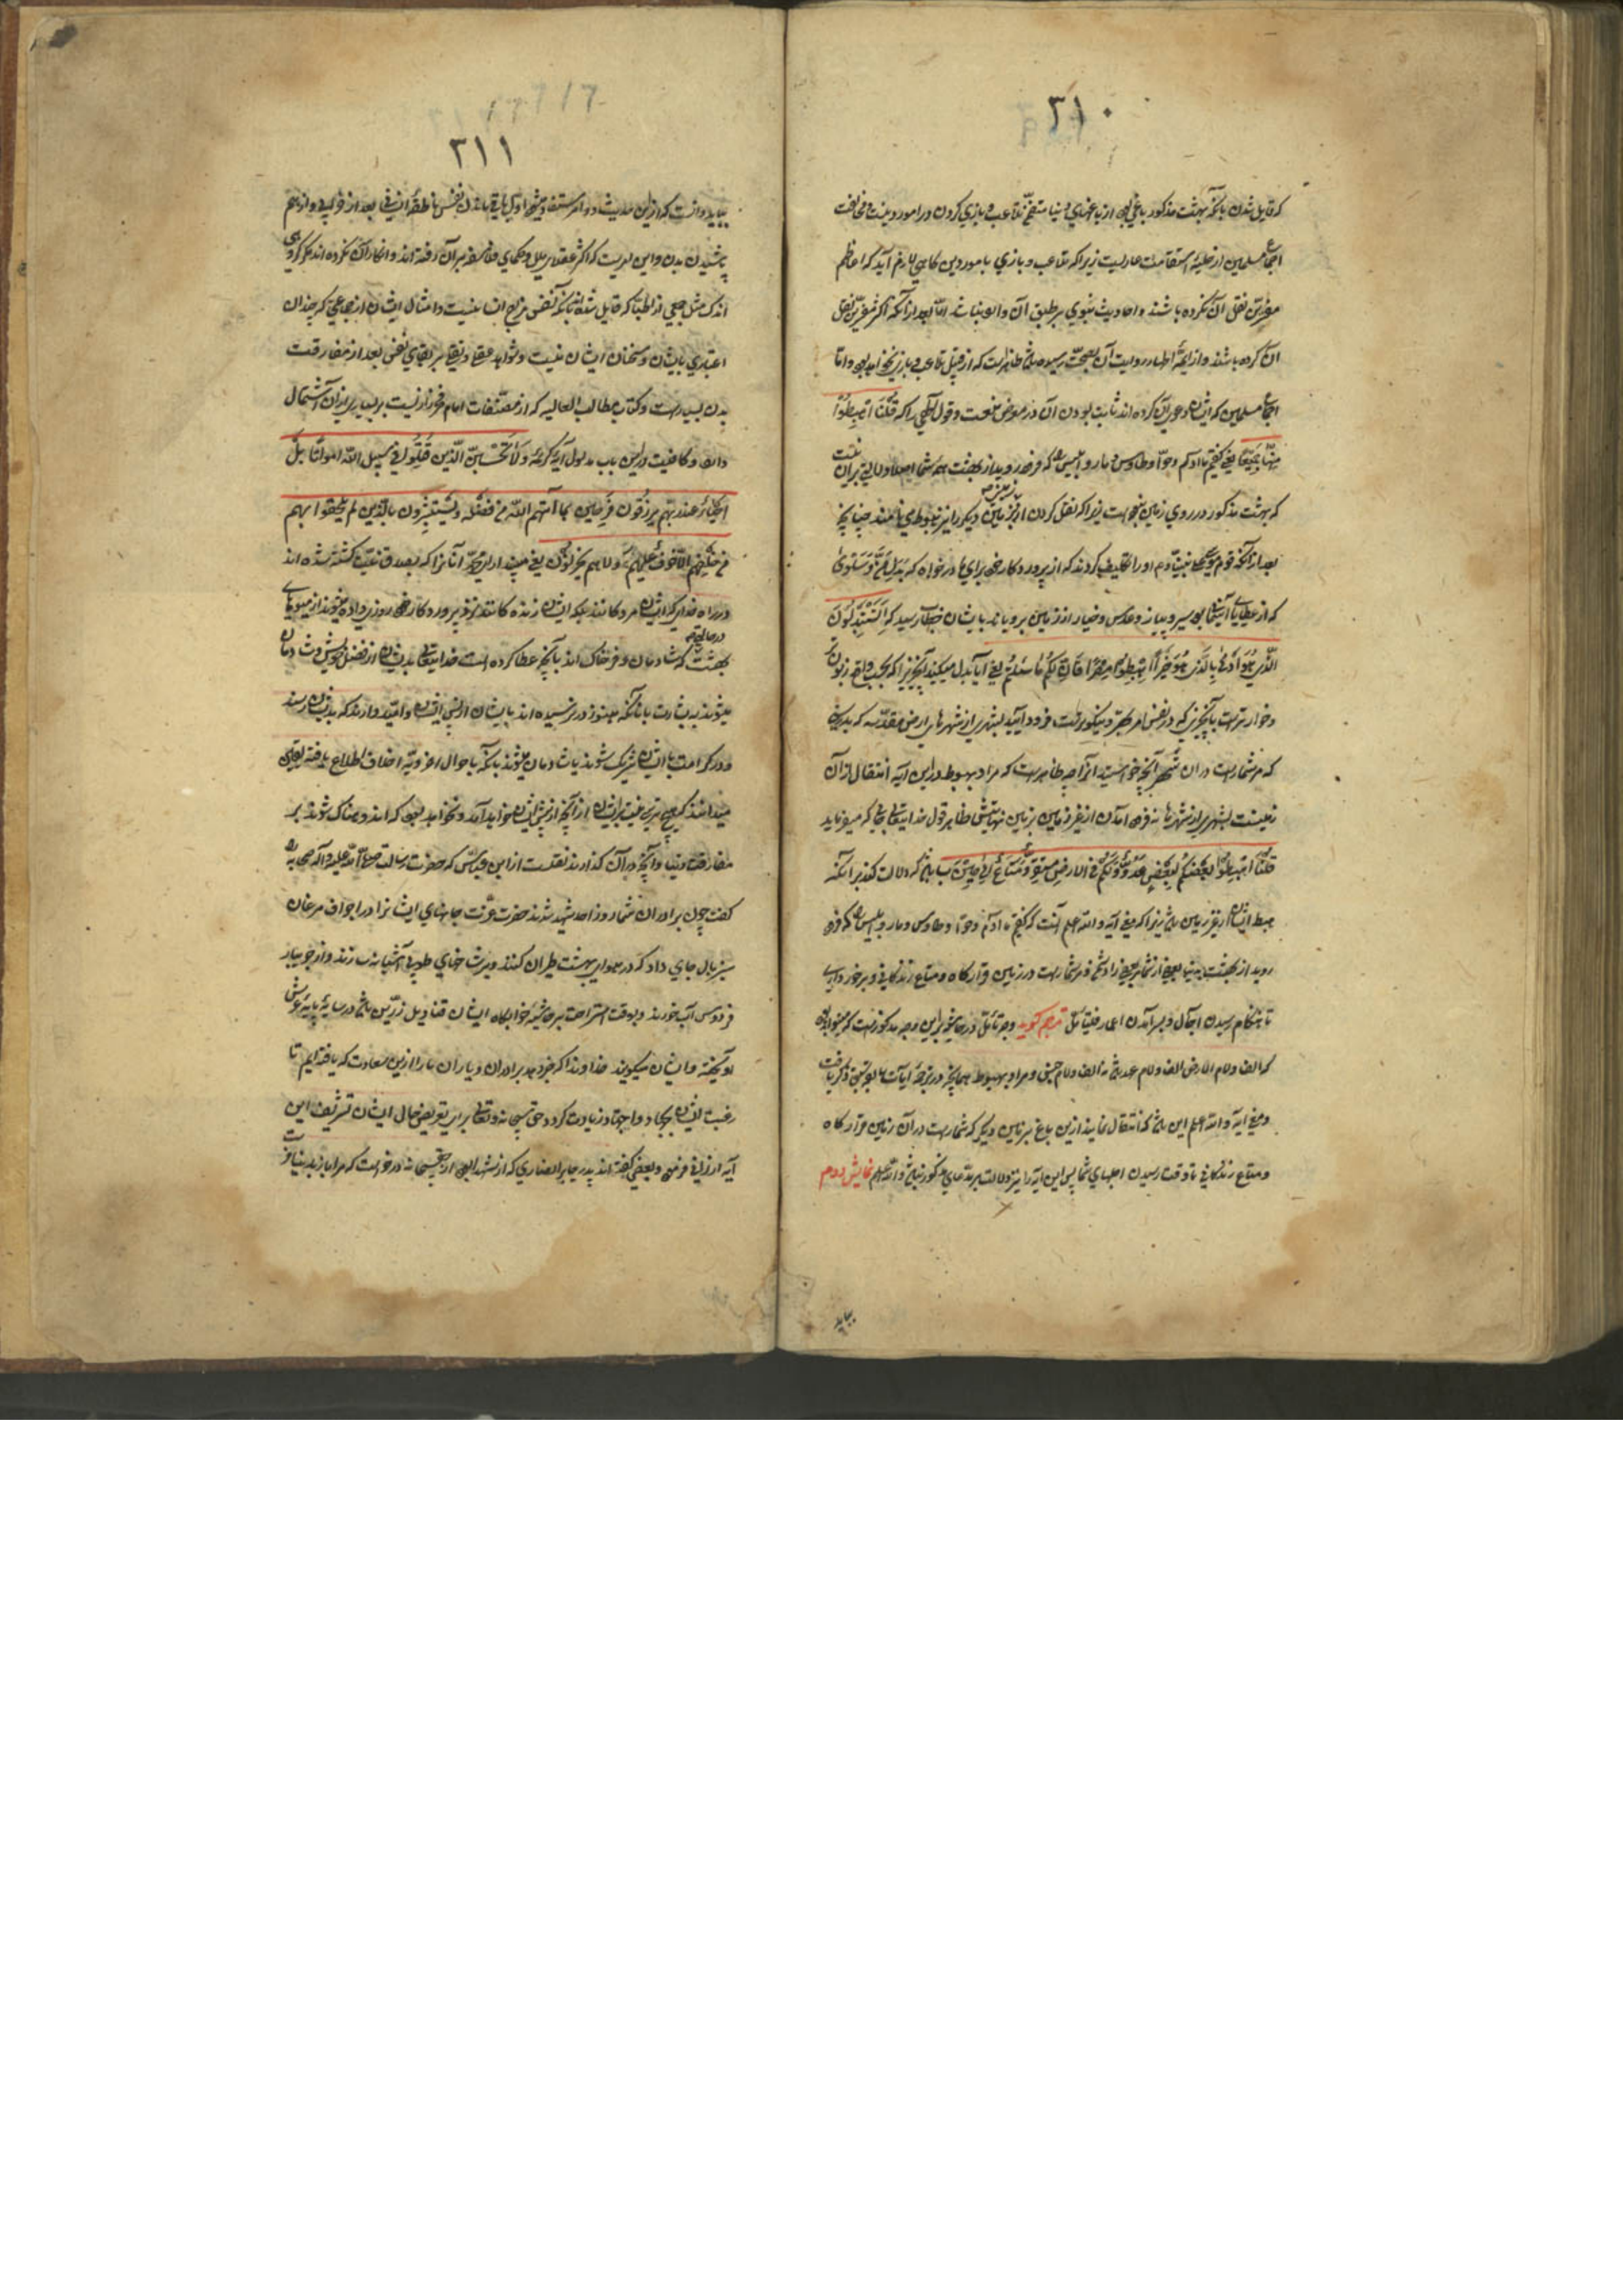 ۲۱۰
که قایل شدن بآنکه بهشت مذکور باغی بود از باغهای دنیا متضمن تلاعب و بازی کردن در امور دینست و مخالفت
اجماع مسلمین از حلیه استقامت عاریست زیرا که تلاعب و بازی با امور دین گاهی لازم آید که اعاظم
مفسرین نقل آن نکرده باشند و احادیث نبوی بر طبق آن واقع نباشد اما بعد از آنکه اکثر مفسرین نقل
آن کرده باشند و از ائمه اطهار روایت آن بصحت رسیده باشد ظاهرست که از قبیل تلاعب و بازی نخواهد بود و اما
اجماع مسلمین که ایشان دعوی آن کرده اند ثابت بودن آن در معرض منعست و قول الهی را که قُلْنَا اهْبِطُوا
مِنْهَا جَمِیعًا یعنی گفتیم ما آدم و حوا و طاوس و مار و ابلیس را که فرود روید از بهشت همه شما اصلا دلالتی بر آن نیست
که بهشت مذکور در روی زمین نبوده است زیرا که نقل کردن از زمین بزمین دیگر را نیز هبوط می نامند چنانچه
بعد از آنکه قوم موسی علی نبینا و علیه السلام او را تکلیف کردند که از پروردگار خود برای ما درخواه که بدل مَنّ و سَلْوی
که از عطایای آسمانی بود سیر و پیاز و عدس و خیار از زمین برویاند بایشان خطاب رسید که أَتَسْتَبْدِلُونَ
الَّذِی هُوَ أَدْنَی بِالَّذِی هُوَ خَیْرٌ اهْبِطُوا مِصْرًا فَإِنَّ لَکُمْ مَا سَأَلْتُمْ یعنی آیا بدل میکنید آنچیز را که بحسب واقع زبون
و خوارترست بآنچیزی که در نفس امر بهتر و نیکوترست فرود آیید بشهری از شهرهای ارض مقدسه که بدرستی
که مر شما راست در آن شهر آنچه خواستید از آن چه ظاهرست که مراد بهبوط در این آیه انتقال از آن
زمینست بشهری از شهرها نه فرود آمدن از غیر زمین بزمین نهایتش ظاهر قول خدایتعالی جایی که میفرماید
قُلْنَا اهْبِطُوا بَعْضُکُمْ لِبَعْضٍ عَدُوٌّ وَلَکُمْ فِی الْأَرْضِ مُسْتَقَرٌّ وَمَتَاعٌ إِلَی حِینٍ باشد که دلالت کند بر آنکه
هبوط ایشان از غیر زمین باشد زیرا که معنی آیه و الله اعلم آنست که گفتیم ما آدم و حوا و طاوس و مار و ابلیس را که فرود
روید از بهشت بدنیا بعضی از شما بر بعضی را دشمنید و مر شما راست در زمین قرارگاه و متاع زندگانی و برخورداری
تا هنگام رسیدن اجال و بسرآمدن اعمار فلیتأمل مترجم گوید وجه تأمل در حاشیه بر این وجه مذکورست که میتواند بود
که الف و لام الارض الف و لام عهد باشد نه الف و لام جنس و مراد بهبوط همانچه در ترجمه آیات سابق ذکر یافت
و معنی آیه و الله اعلم این باشد که انتقال نمایید ازین باغ بزمین دیگر که شما راست در آن زمین قرارگاه
و متاع زندگانی تا وقت رسیدن اجلهای شما پس این آیه را نیز دلالت بر مدعای مذکور نباشد و الله اعلم نمایش دوم
بباید
۲۱۱
بباید دانست که ازین حدیث دو امر مستفاد میشود اول باقی ماندن نفس ناطقه انسانی بعد از خرابی و از هم
پاشیدن بدن و این امریست که اکثر عقلاء ملل و حکمای فلاسفه بر آن رفته اند و انکار آن نکرده اند مگر گروهی
اندک مثل جمعی از اطبا که قایل شده اند بآنکه نفس مزاج انسانیست و امثال ایشان از جماعتی که چندان
اعتباری بایشان و سخنان ایشان نیست و شواهد عقلی و نقلی بر بقای نفس بعد از مفارقت
بدن بسیارست و کتاب مطالب العالیه که از مصنفات امام فخر رازیست بر بسیاری از آن اشتمال
دارد و کافیست درین باب مدلول آیه کریمه وَلَا تَحْسَبَنَّ الَّذِینَ قُتِلُوا فِی سَبِیلِ اللّهِ أَمْوَاتًا بَلْ
أَحْیَاءٌ عِنْدَ رَبِّهِمْ یُرْزَقُونَ فَرِحِینَ بِمَا آتَاهُمُ اللّهُ مِنْ فَضْلِهِ وَیَسْتَبْشِرُونَ بِالَّذِینَ لَمْ یَلْحَقُوا بِهِمْ
مِنْ خَلْفِهِمْ أَلَّا خَوْفٌ عَلَیْهِمْ وَلَا هُمْ یَحْزَنُونَ یعنی مپندار ای محمد آنانرا که بصدق نیت کشته شده اند
در راه خدای که ایشان مردگانند بلکه ایشان زنده گانند نزد پروردگار خود روزی داده میشوند از میوهای
بهشت در حالتی که شادمان و فرحناک اند بآنچه عطا کرده است خدایتعالی بدیشان از فضل خویش و شادمان
میشوند به بشارت بآنانکه هنوز در نرسیده اند بایشان از پس ایشان و امید دارند که بدیشان رسند
و در کرامت با ایشان شریک شوند یا شادمان میشوند بآنکه باحوال اخرویه اخلاف اطلاع یافته بیقین
میدانند که هیچ ترسی نیست بر ایشان از آنچه از پیش ایشان خواهد آمد و نخواهد بود که اندوهناک شوند بر
مفارقت دنیا و آنچه در آن گذارند نقلست از ابن عباس که حضرت رسالت صلی الله علیه و آله صحابه را
گفت چون برادران شما روز احد شهید شدند حضرت عزت جانهای ایشانرا در اجواف مرغان
سبزبال جای داد که در هوای بهشت طیران کنند و بر شاخهای طوبی آشیانه سازند و از جویبار
فردوس آب خورند و بوقت استراحت بر حاشیه خوابگاه ایشان قنادیل زرین باشد در سایه پایه عرش
آویخته و ایشان میگویند خداوندا که خبر دهد برادران و یاران ما را ازین سعادت که یافته ایم تا
رغبت ایشان بجهاد و اجتهاد زیادت گردد حق سبحانه و تعالی برای تعریض حال ایشان تشریف این
آیه ارزانی فرمود و بعضی گفته اند پدر جابر انصاری که از شهدا بود از حق سبحانه درخواست که مرا باز بدنیا فرست